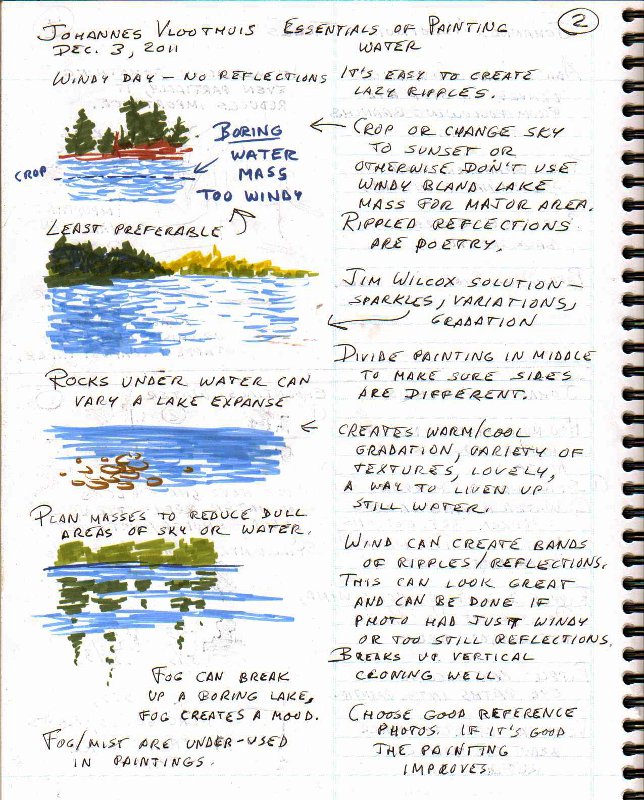 JOHANNES VLOOTHUIS ESSENTIALS OF PAINTING
DEC. 3, 2011 WATER
2
WINDY DAY – NO REFLECTIONS
BORING
WATER
MASS
TOO WINDY
CROP
LEAST PREFERABLE
ROCKS UNDER WATER CAN
VARY A LAKE EXPANSE
PLAN MASSES TO REDUCE DULL
AREAS OF SKY OR WATER.
FOG CAN BREAK
UP A BORING LAKE,
FOG CREATES A MOOD.
FOG/MIST ARE UNDER-USED
IN PAINTINGS.
IT'S EASY TO CREATE
LAZY RIPPLES.
CROP OR CHANGE SKY
TO SUNSET OR
OTHERWISE DON'T USE
WINDY BLAND LAKE
MASS FOR MAJOR AREA.
RIPPLED REFLECTIONS
ARE POETRY.
JIM WILCOX SOLUTION –
SPARKLES, VARIATIONS,
GRADATION
DIVIDE PAINTING IN MIDDLE
TO MAKE SURE SIDES
ARE DIFFERENT.
CREATES WARM/COOL
GRADATION, VARIETY OF
TEXTURES, LOVELY,
A WAY TO LIVEN UP
STILL WATER.
WIND CAN CREATE BANDS
OF RIPPLES/REFLECTIONS.
THIS CAN LOOK GREAT
AND CAN BE DONE IF
PHOTO HAD JUST WINDY
OR TOO STILL REFLECTIONS.
BREAKS UP VERTICAL
CLONING WELL.
CHOOSE GOOD REFERENCE
PHOTOS. IF IT'S GOOD
THE PAINTING
IMPROVES